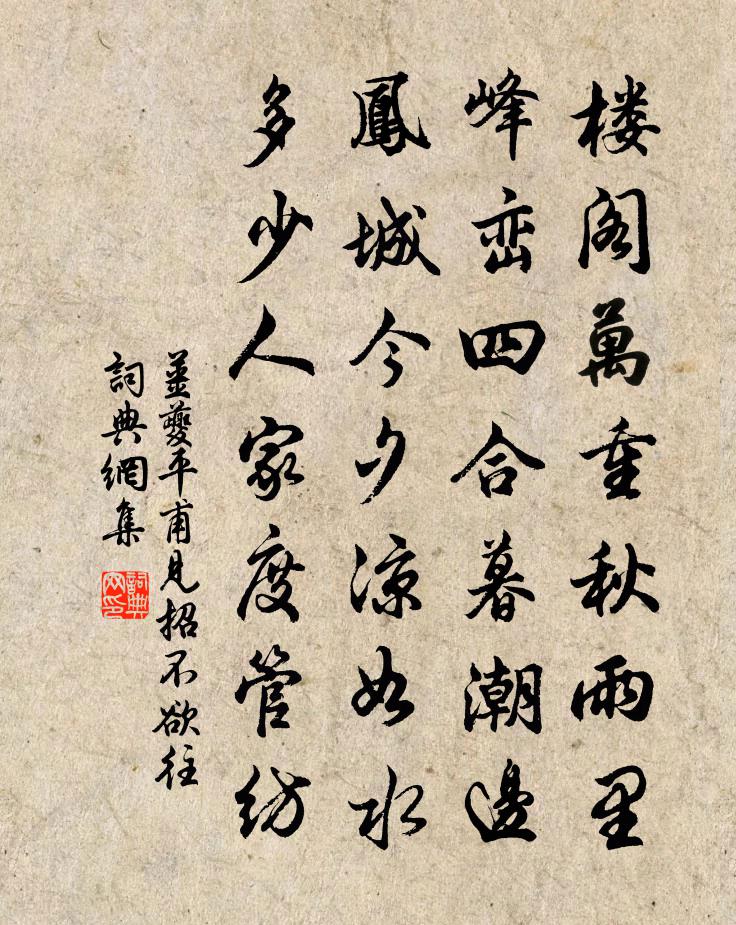 楼阁萬重秋雨里
峰峦四合暮潮邊
鳳城今夕涼如水
多少人家度管纺
姜夔平甫見招不欲往
詞典網集
詞典网印